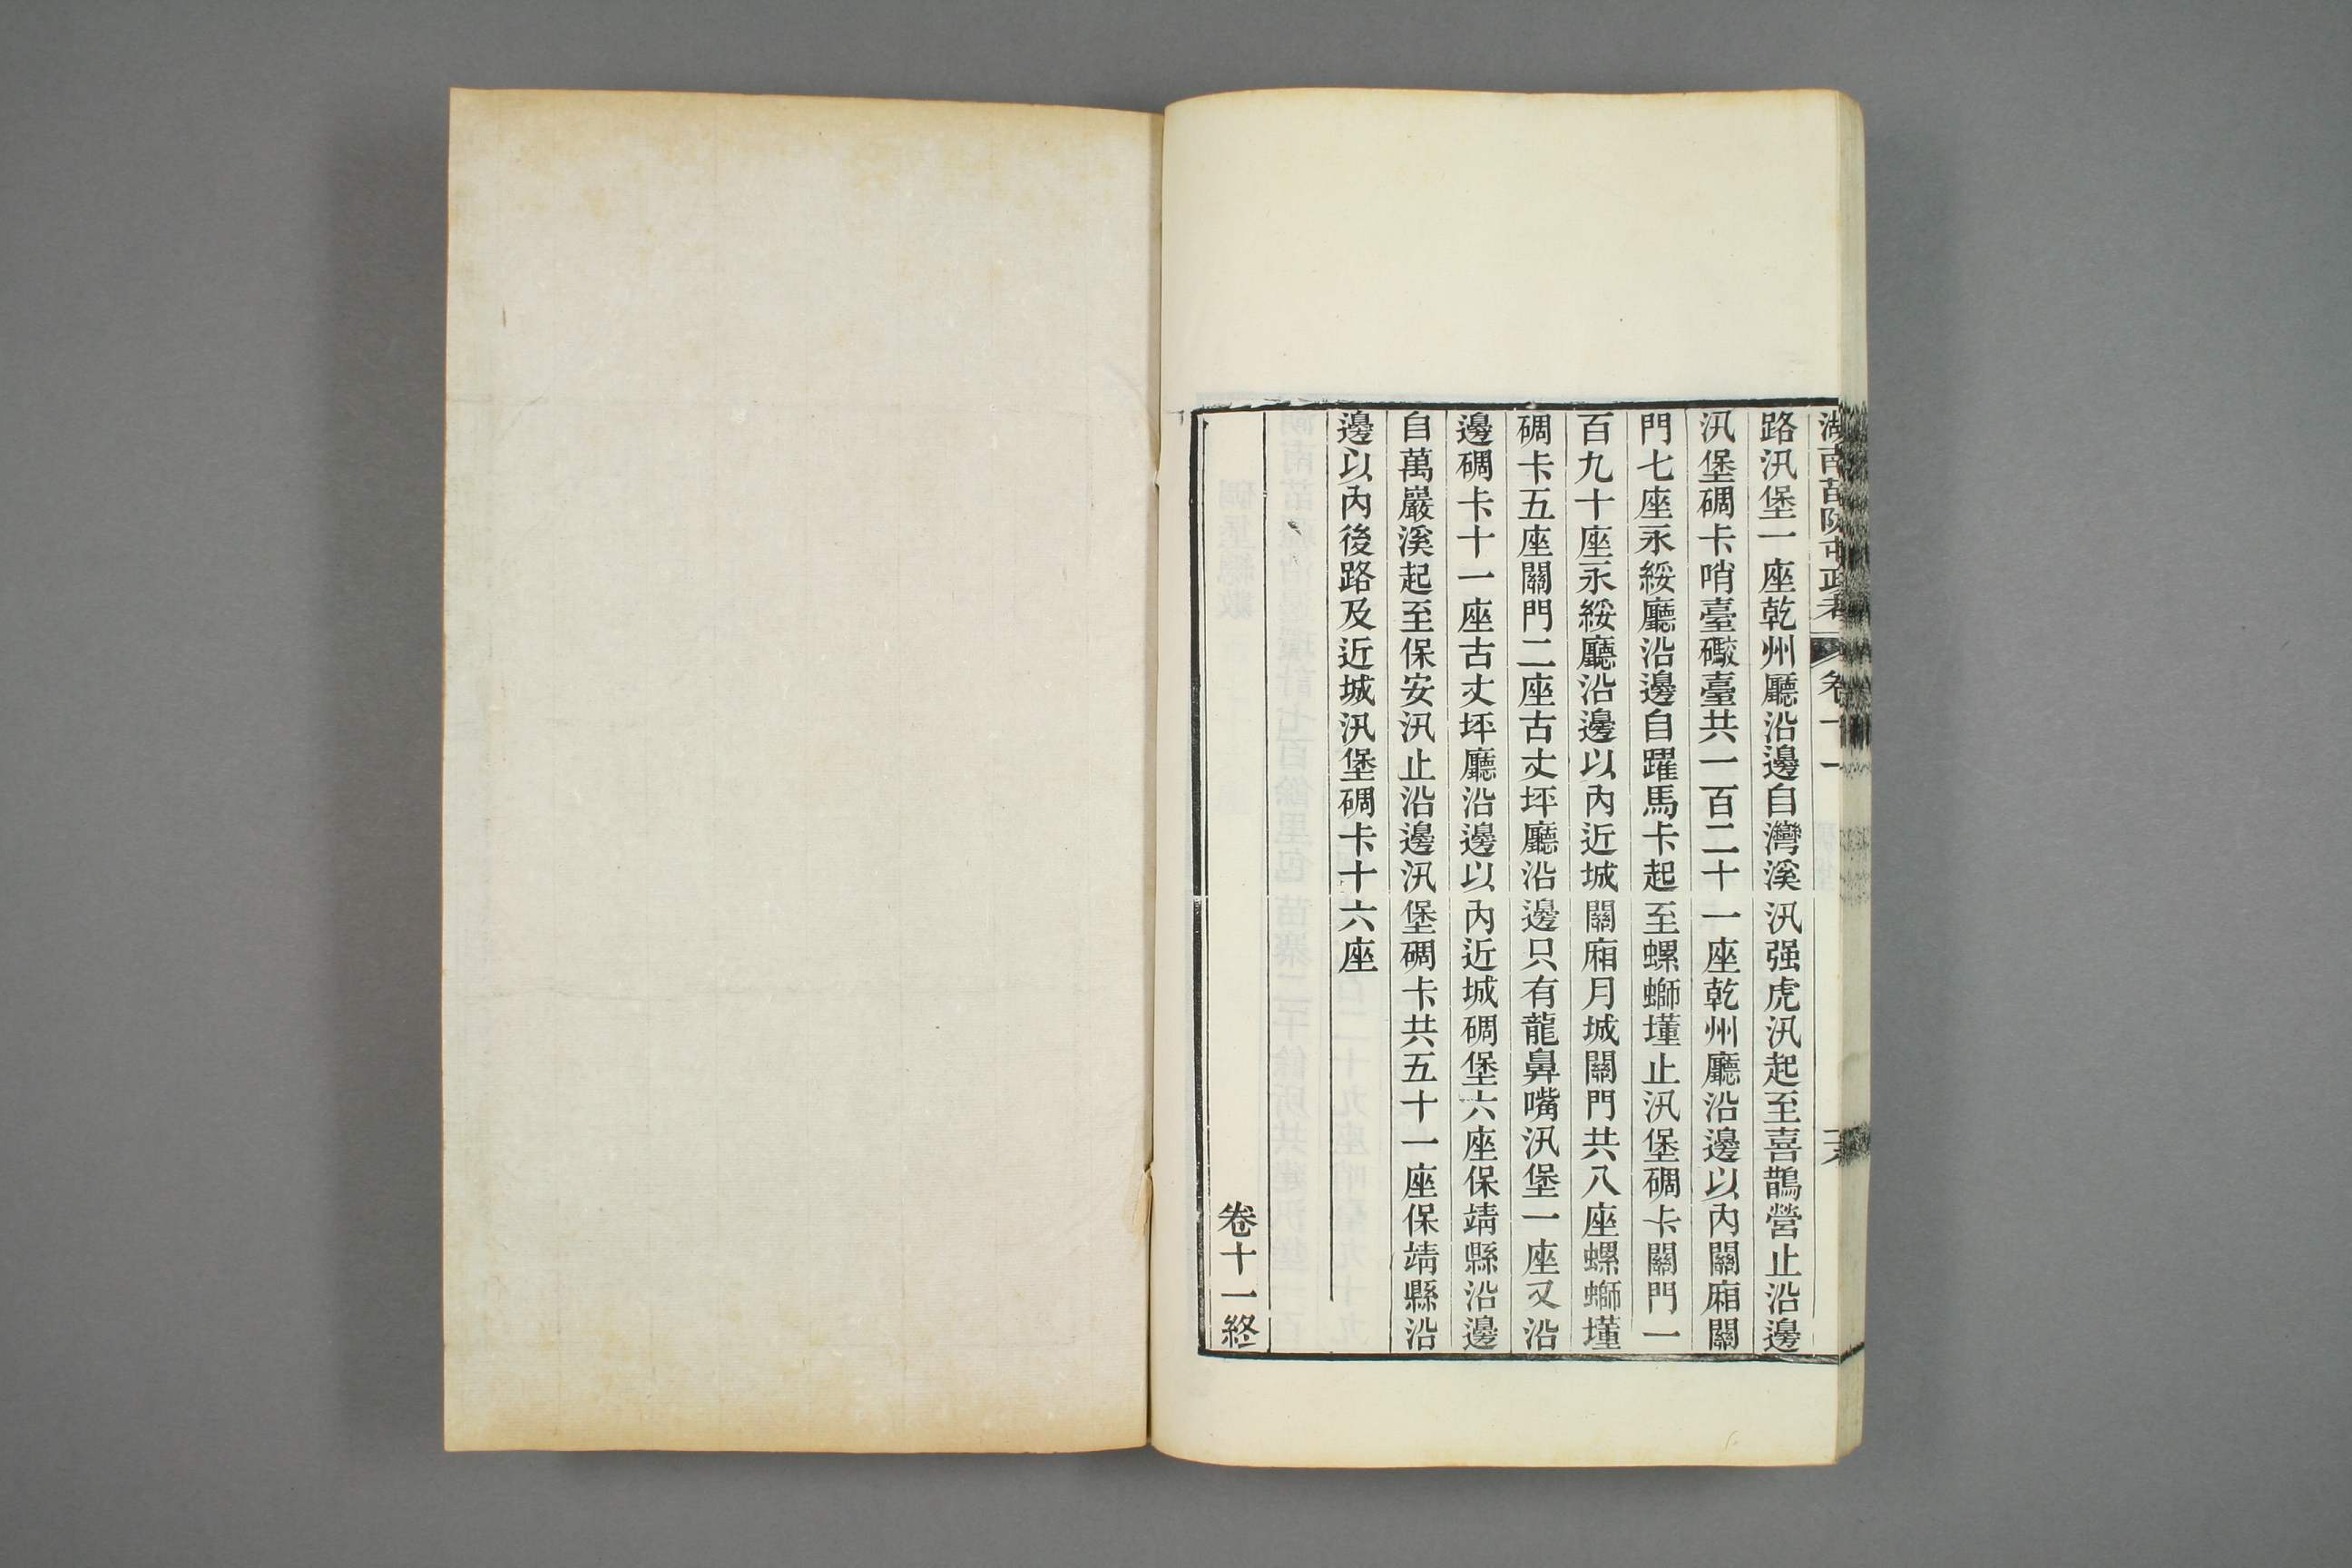 湖南苗防屯政考 卷十一
路汛堡一座乾州廳沿邊自灣溪汛强虎汛起至喜鵲營止沿邊
汛堡碉卡哨臺礮臺共一百二十一座乾州廳沿邊以內關廂關
門七座永綏廳沿邊自躍馬卡起至螺螄墐止汛堡碉卡關門一
百九十座永綏廳沿邊以內近城關廂月城關門共八座螺螄墐
碉卡五座關門二座古丈坪廳沿邊只有龍鼻嘴汛堡一座又沿
邊碉卡十一座古丈坪廳沿邊以內近城碉堡六座保靖縣沿邊
自萬巖溪起至保安汛止沿邊汛堡碉卡共五十一座保靖縣沿
邊以內後路及近城汛堡碉卡十六座
卷十一終